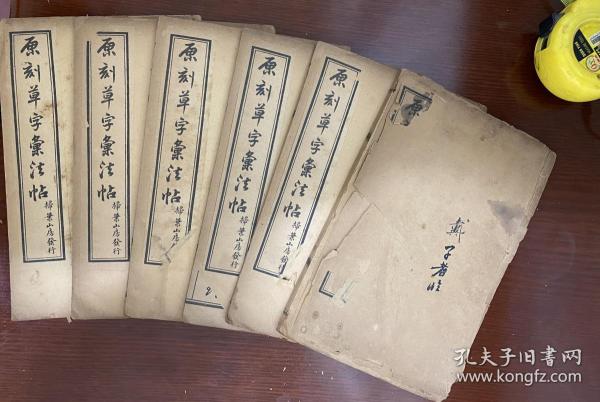 原刻草字彙法帖
掃葉山房發行
原刻草字彙法帖
掃葉山房發行
原刻草字彙法帖
掃葉山房
原刻草字彙法帖
掃葉山房發行
2.
原刻草字彙法帖
掃葉山房發行
原
戴子
孔夫子旧书网
www.kongfz.com